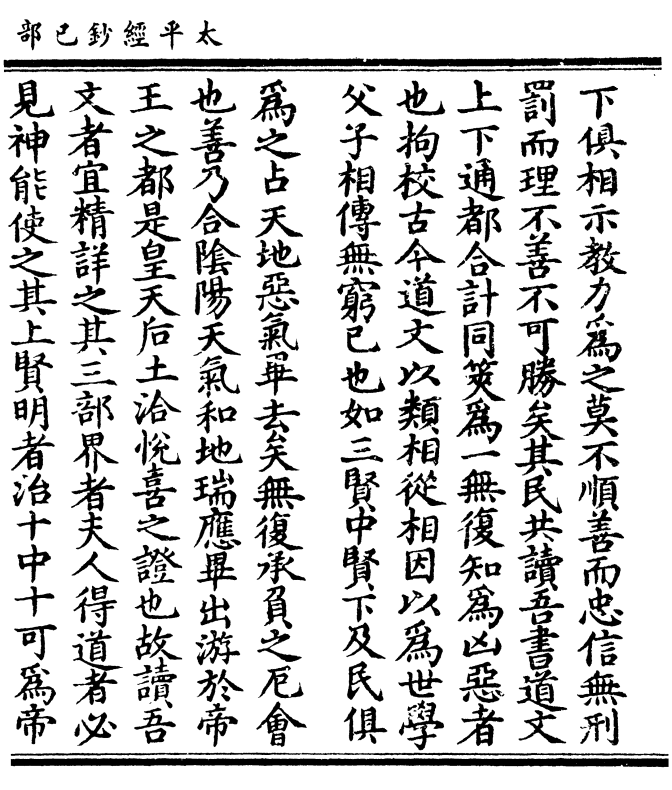 太平經鈔已部
下俱相示教力爲之莫不順善而忠信無刑
罰而理不善不可勝矣其民共讀吾書道文
上下通都合計同筴爲一無復知爲凶惡者
也拘校古今道文以類相從相因以爲世學
父子相傳無窮已也如三賢中賢下及民俱
爲之占天地惡氣畢去矣無復承負之厄會
也善乃合陰陽天氣和地瑞應畢出游於帝
王之都是皇天后土洽悅喜之證也故讀吾
文者宜精詳之其三部界者夫人得道者必
見神能使之其上賢明者治十中十可爲帝